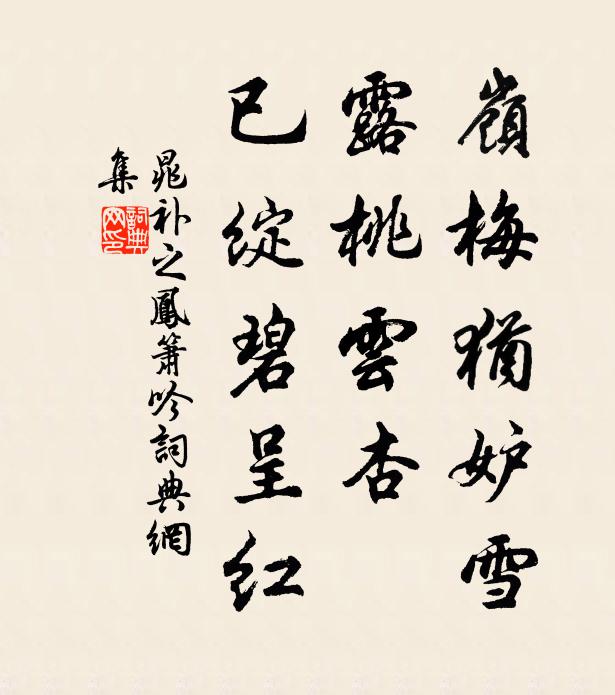 嶺梅猶妒雪
露桃雲杏
已綻碧呈紅
晁補之鳳簫吟詞典網
集
詞典網印